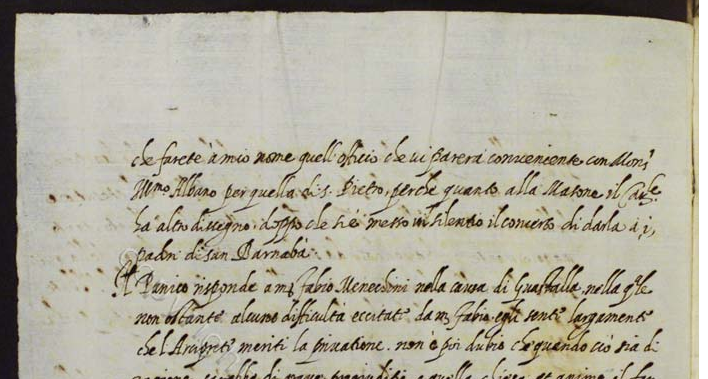 che farete à mio nome quell'officio che vi parerà conveniente con Mons.r
Ill.mo Albano per quella di s. Pietro, perche quanto alla Masone il Car.le
ha altro dissegno, doppo che si è messo in silentio il concerto di darla à i
padri di san Barnaba.
Il Panico risponde a m. fabio Meneclini nella causa di Guastalla, nella q.le
non ostante alcune difficultà eccitate da m. fabio, egli sente largamente
che l'Arciprete meriti la privatione. non è poi dubio che quando ciò sia di
di grave pregiuditio a quella chiesa et